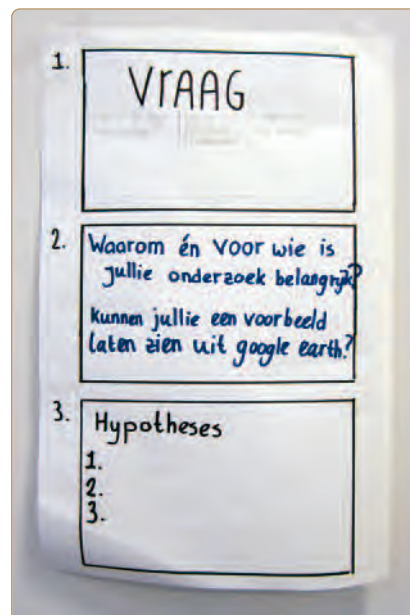 1.
VrAAG
2.
Waarom én voor wie is
jullie onderzoek belangrijk?
Kunnen jullie een voorbeeld
laten zien uit google earth?
3.
Hypotheses
1.
2.
3.